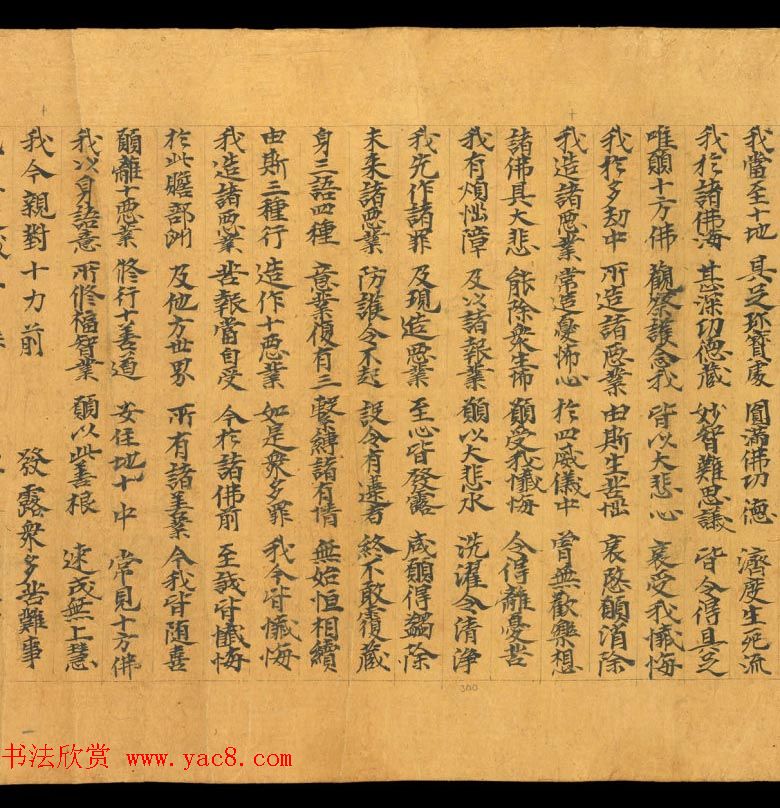 我當至十地 具足珎寶處 圓滿佛功德 濟度生死流
我於諸佛海 甚深功德藏 妙智難思議 皆令得具足
唯願十方佛 觀察護念我 皆以大悲心 哀受我懺悔
我於多劫中 所造諸惡業 由斯生苦惱 哀愍願消除
我造諸惡業 常造憂怖心 於四威儀中 曾無歡樂想
諸佛具大悲 能除衆生怖 願受我懺悔 令得離憂苦
我有煩惱障 及以諸報業 願以大悲水 洗濯令清淨
我先作諸罪 及現造惡業 至心皆發露 咸願得蠲除
未來諸惡業 防護令不起 設令有違者 終不敢覆藏
身三語四種 意業復有三 繫縛諸有情 無始恒相續
由斯三種行 造作十惡業 如是衆多罪 我今皆懺悔
我造諸惡業 苦報當自受 今於諸佛前 至誠皆懺悔
於此贍部洲 及他方世界 所有諸善業 今我皆随喜
願離十惡業 修行十善道 安住地十中 常見十方佛
我以身語意 所修福智業 願以此善根 速成無上慧
我今親對十力前 發露衆多苦難事
书法欣赏 www.yac8.com
300